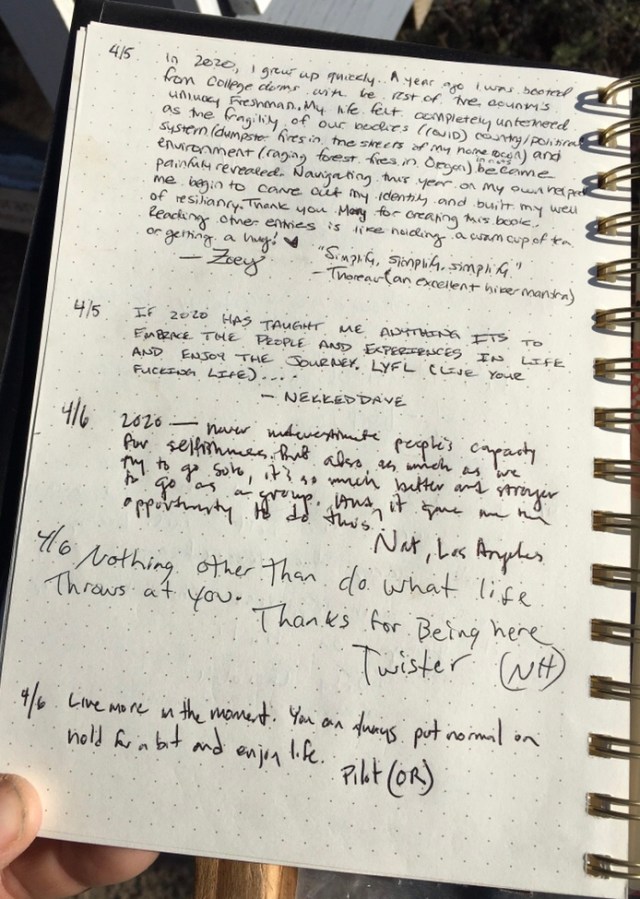 4/5 In 2020, I grew up quickly. A year ago I was booted
from college dorms with the rest of the country's
unlucky Freshman. My life felt completely untethered
as the fragility of our bodies (COVID) country/political
system (dumpster fires in the streets of my home) and
environment (raging forest fires in Oregon) became
painfully revealed. Navigating this year on my own helped
me begin to carve out my identity and built my well
of resiliancy. Thank you for creating this book.
Reading other entries is like holding a warm cup of tea
or getting a hug! ♥
— Zoey
"Simplify, simplify, simplify."
- Thoreau (an excellent hiker mantra)
4/5 IF 2020 HAS TAUGHT ME ANYTHING ITS TO
EMBRACE THE PEOPLE AND EXPERIENCES IN LIFE
AND ENJOY THE JOURNEY. LYFL (LIVE YOUR
FUCKING LIFE)....
- NEKKED DAVE
4/6 2020 — never underestimate people's capacity
for selfishness. But also, as much as we
try to go solo, it's so much better and stronger
to go as a group. And, it gave me an
opportunity to do this.
Nat, Los Angeles
4/6 Nothing other Than do what life
Throws at you.
Thanks for Being here
Twister (NH)
4/6 Live more in the moment. You can always put normal on
hold for a bit and enjoy life.
Pilot (OR)